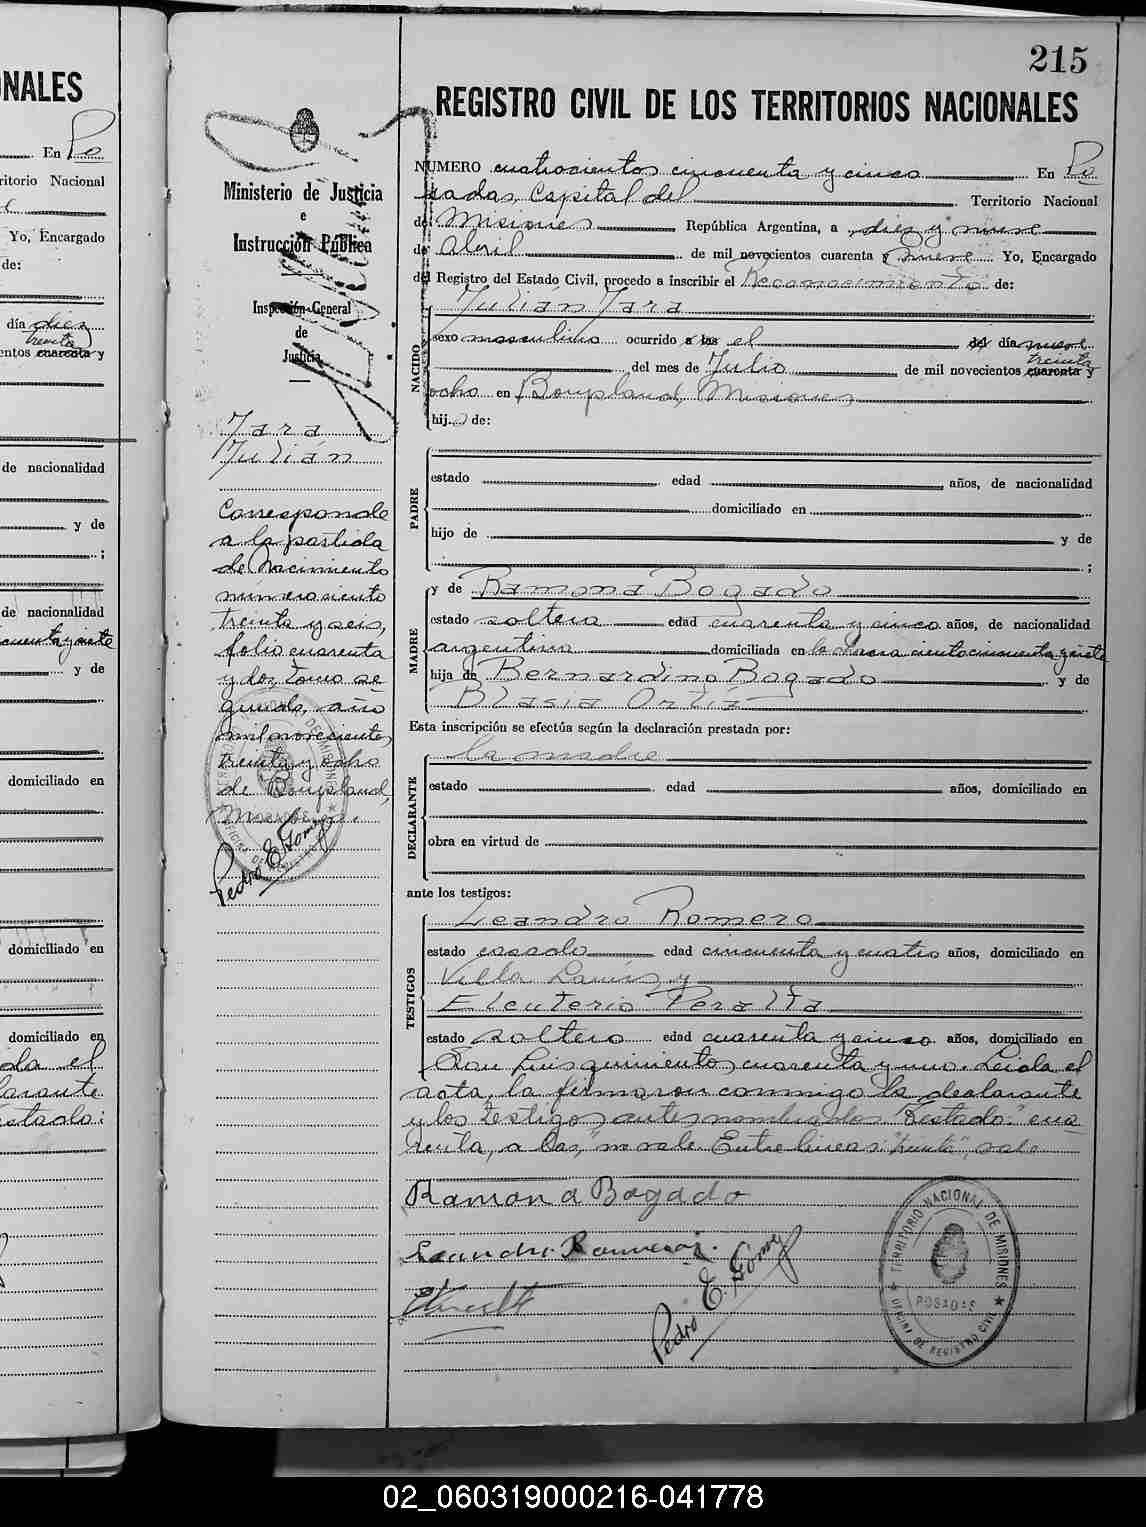 215
REGISTRO CIVIL DE LOS TERRITORIOS NACIONALES
NUMERO cuatrocientos cincuenta y cinco En Po
sadas, Capital del Territorio Nacional
de Misiones República Argentina, a diez y nueve
de abril de mil novecientos cuarenta y nueve Yo, Encargado
del Registro del Estado Civil, procedo a inscribir el Reconocimiento de:
Julián Jara
NACIDO
sexo masculino ocurrido a las el del día nueve
treinta
del mes de Julio de mil novecientos cuarenta y
ocho en Bonpland, Misiones
hij... de:
PADRE
estado edad años, de nacionalidad
domiciliado en
hijo de y de
;
MADRE
y de Ramona Bogado
estado soltera edad cuarenta y cinco años, de nacionalidad
argentina domiciliada en la chacra ciento cincuenta y siete
hija de Bernardino Bogado y de
Blasia Ortiz
Esta inscripción se efectúa según la declaración prestada por:
la madre
DECLARANTE
estado edad años, domiciliado en
obra en virtud de
ante los testigos:
TESTIGOS
Leandro Romero
estado casado edad cincuenta y cuatro años, domiciliado en
Villa Lanús, y
Eleuterio Peralta
estado soltero edad cuarenta y cinco años, domiciliado en
San Luis quinientos cuarenta y uno. Leída el
acta, la firmaron conmigo la declarante
y los testigos antes nombrados. Testado: "cua
renta, a las," no vale. Entre lineas: "treinta", vale
Ramona Bogado
Leandro Romero
Pedro E. Gomez
TERRITORIO NACIONAL DE MISIONES
POSADAS
OFICINA DE REGISTRO CIVIL
Ministerio de Justicia
e
Instrucción Pública
Inspección General
de
Justicia
Jara
Julián
Corresponde
a la partida
de Nacimiento
número ciento
treinta y seis,
folio cuarenta
y dos, tomo se
gundo, año
mil novecientos
treinta y ocho
de Bonpland,
Misiones.
Pedro E. Gomez
ONALES
En Po
ritorio Nacional
Yo, Encargado
de:
día diez
treinta
entos cuarenta y
de nacionalidad
y de
;
de nacionalidad
cuenta y siete
y de
domiciliado en
domiciliado en
domiciliado en
ída el
larante
estado:
02_060319000216-041778